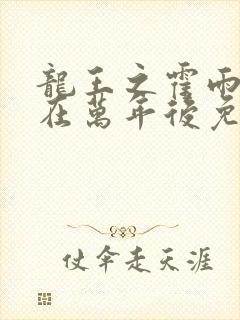 龍王之霍雨
在萬年後免
仗傘走天涯